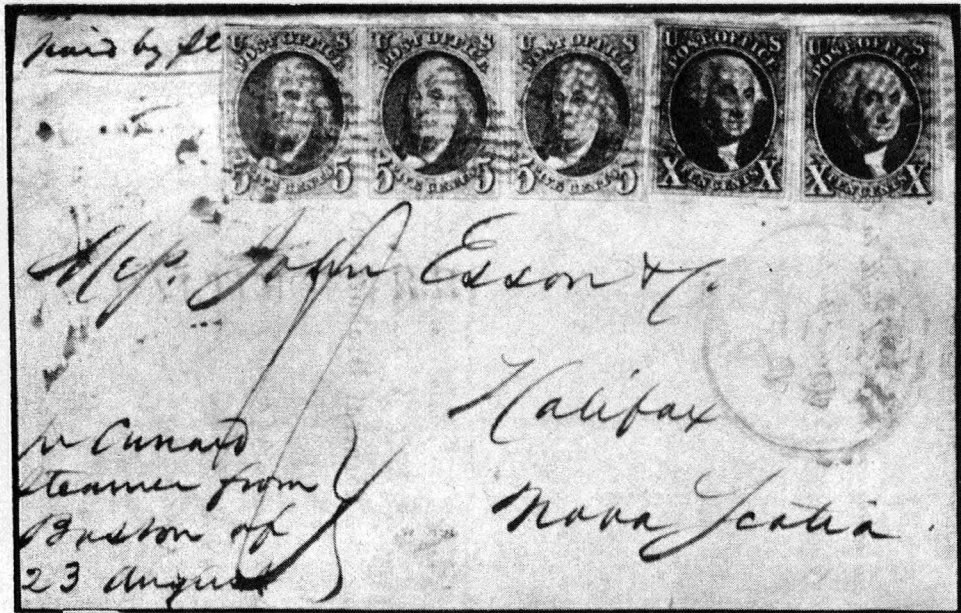 Paid by St
U S POST OFFICE 5 FIVE CENTS 5
U S POST OFFICE 5 FIVE CENTS 5
U S POST OFFICE 5 FIVE CENTS 5
U S POST OFFICE X TEN CENTS X
U S POST OFFICE X TEN CENTS X
Messrs. John Esson & Co.
Halifax
Nova Scotia.
pr Cunard
steamer from
Boston of
23 August